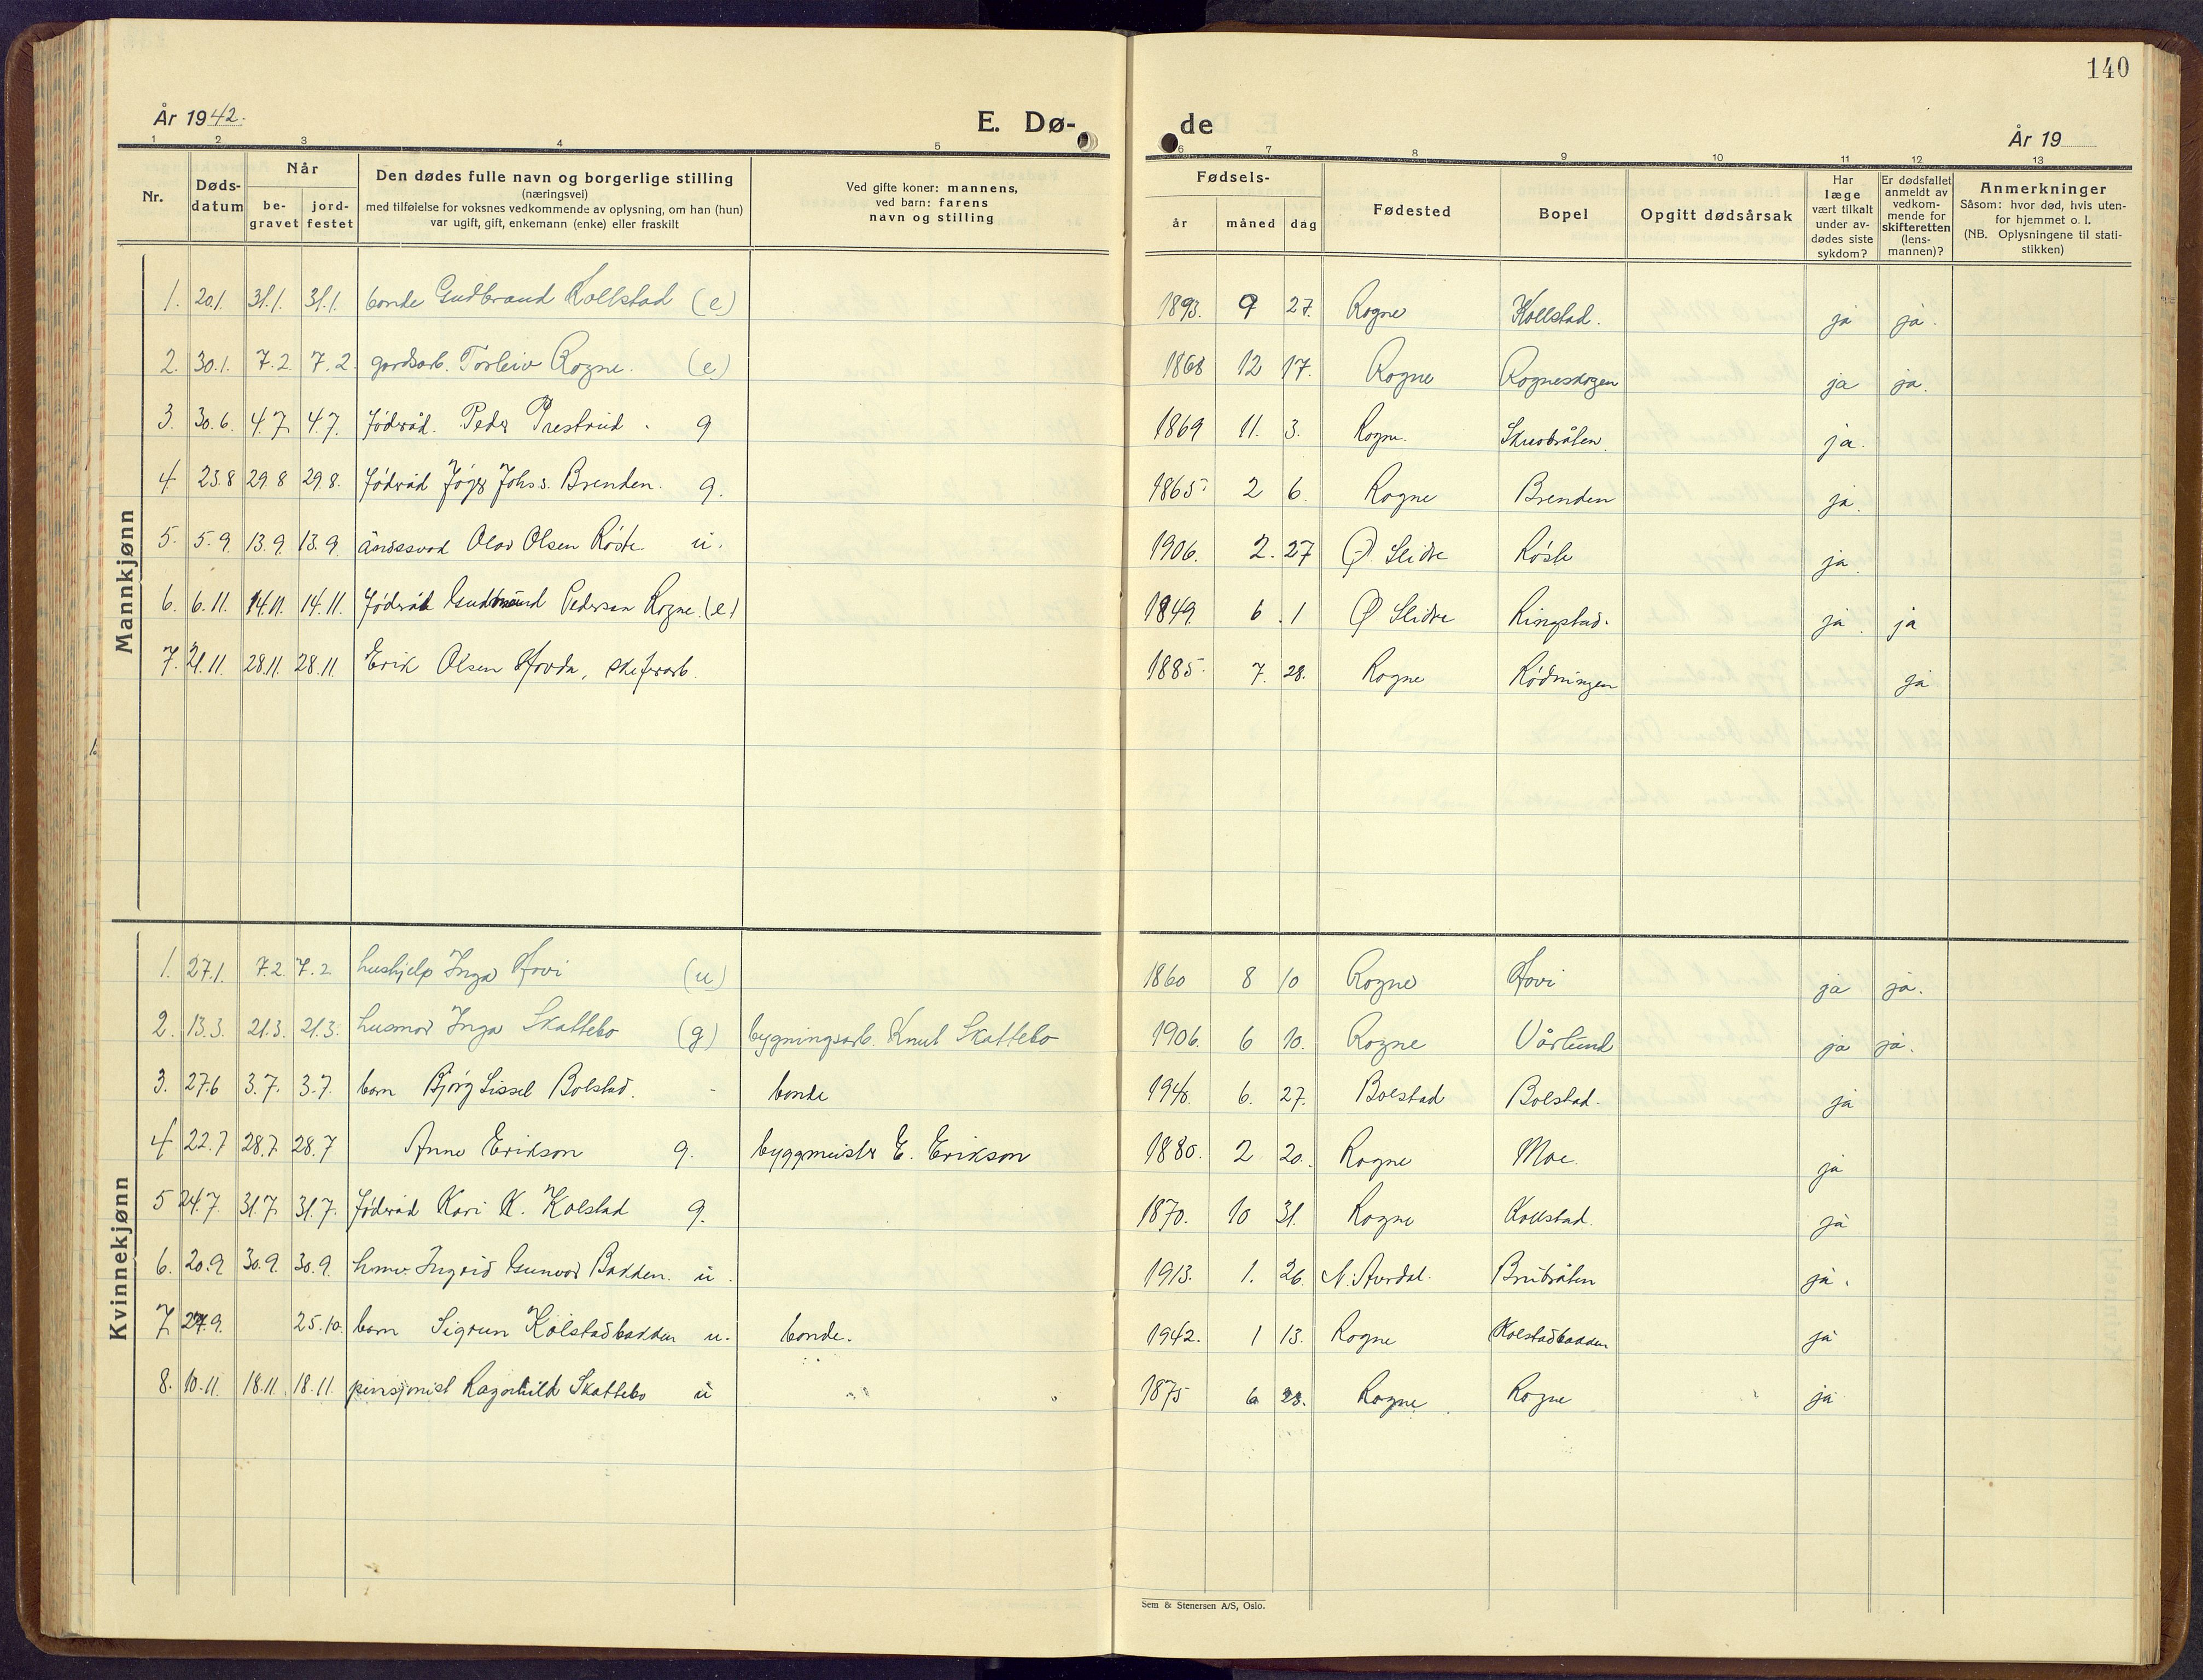 140
År 1942. E. Dø- de År 19
1 2 3 4 5 6 7 8 9 10 11 12 13
Nr. Døds-datum Når be-gravet jord-festet Den dødes fulle navn og borgerlige stilling (næringsvei) med tilføielse for voksnes vedkommende av oplysning, om han (hun) var ugift, gift, enkemann (enke) eller fraskilt Ved gifte koner: mannens, ved barn: farens navn og stilling Fødsels- år måned dag Fødested Bopel Opgitt dødsårsak Har læge vært tilkalt under av-dødes siste sykdom? Er dødsfallet anmeldt av vedkom-mende for skifteretten (lens-mannen)? Anmerkninger Såsom: hvor død, hvis uten-for hjemmet o. l. (NB. Oplysningene til stati-stikken)
Mannkjønn
1. 20.1. 31.1. 31.1. bonde Gudbrand Kollstad (e) 1893. 9 27. Rogne Kollstad. ja ja.
2. 30.1. 7.2. 7.2 gardsarb. Torleiv Rogne. (e) 1868 12 17. Rogne Rogneskogen ja ja.
3. 30.6. 4.7. 4.7. føderåd. Peder Prestrud. g 1869 11. 3. Rogne. ja.
4 23.8 29.8 29.8. føderåd Johs s. Brenden. g. 1865 2 6. Rogne Brenden ja.
5. 5.9. 13.9. 13.9. åndssvak Olav Olsen Røste u. 1906. 2. 27 Ø. Slidre Røste ja.
6. 6.11. 14.11. 14.11. føderåd Gudbrand Pedersen Rogne. (e) 1849 6. 1 Ø Slidre Ringstad. ja. ja
7. 21.11. 28.11. 28.11. Erik Olsen Hovda, skiferarb. 1885 7. 28. Rogne Rødningen ja
Kvinnekjønn
1. 27.1. 7.2. 7.2 hushjelp Inga Hovi (u) 1860 8 10 Rogne Hovi ja ja.
2. 13.3. 21.3. 21.3. husmor Inga Skattebo (g) bygningsarb. Knut Skattebo 1906. 6 10. Rogne Vårlund ja ja.
3. 27.6 3.7. 3.7. barn Bjørg Sissel Bolstad. - bonde 6. 27. Bolstad Bolstad. ja
4 22.7 28.7 28.7 Anne Erikson g. byggmeister E. Erikson 1880. 2 20. Rogne Moe. ja
5 24.7. 31.7. 31.7. føderåd Kari K. Kolstad g. 1870. 10 31. Rogne Kollstad. ja
6. 20.9 30.9. 30.9. Ingrid Gunvor Bakken. u. 1913. 1. 26. N. Aurdal. Brubråten ja.
7 27.9. 25.10. barn Sigrun Kolstadbakken u. bonde. 1942. 1 13. Rogne Kolstadbakken ja
8. 10.11. 18.11. 18.11. pensjonist Ragnhild Skattebo u 1875 6 23. Rogne Rogne ja
Sem & Stenersen A/S, Oslo.